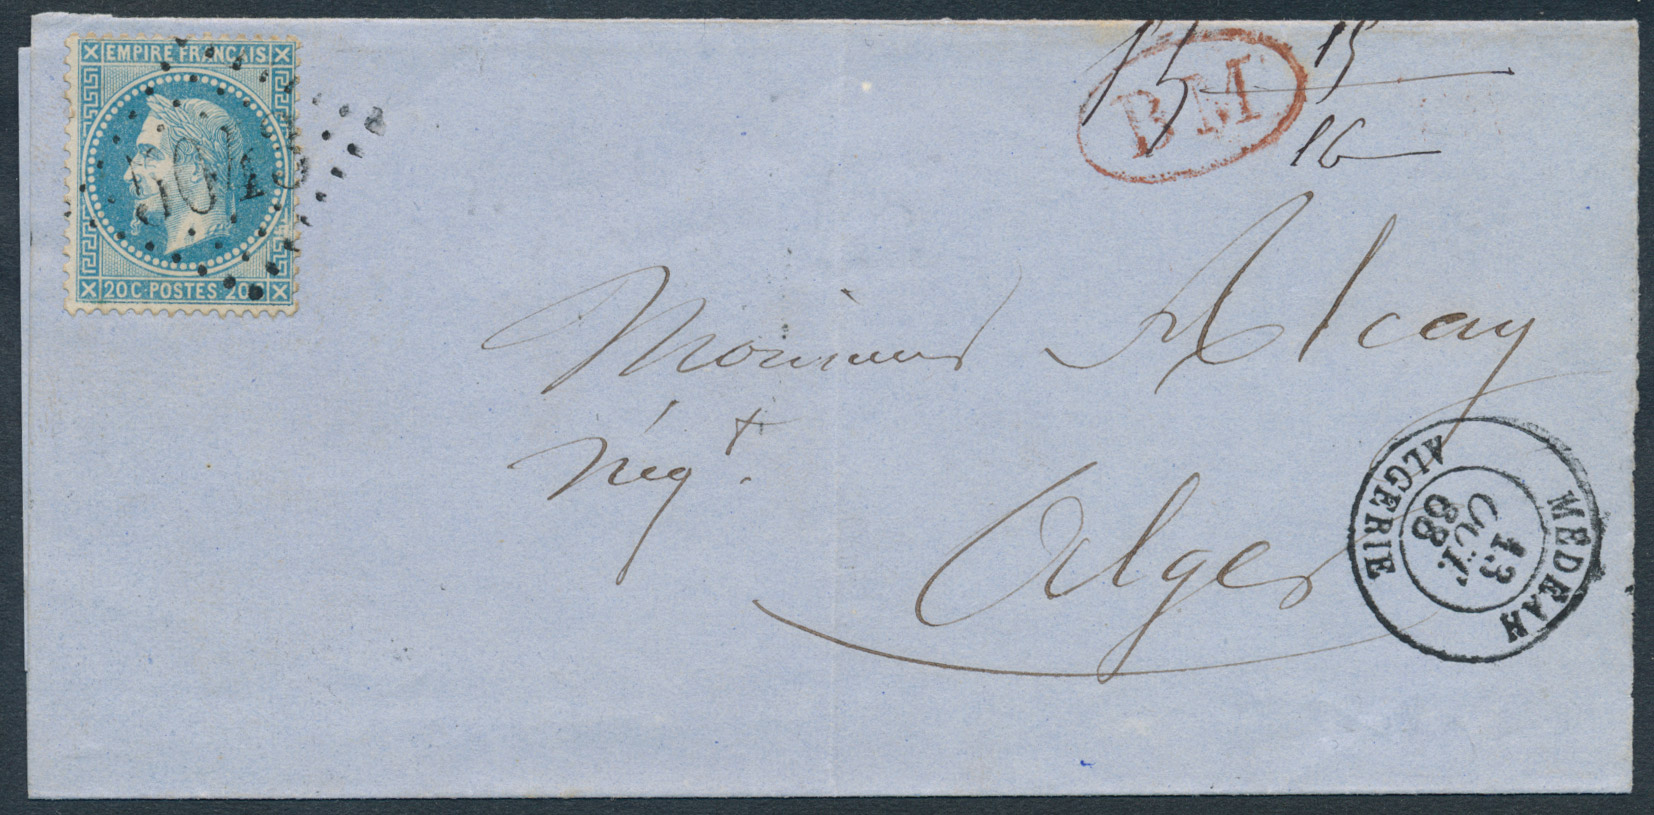 EMPIRE FRANÇAIS
5045
20C·POSTES·20C
BM
15
16
Monsieur Alcay
Négt.
Alger
MÉDÉAH
13
OCT.
68
ALGÉRIE